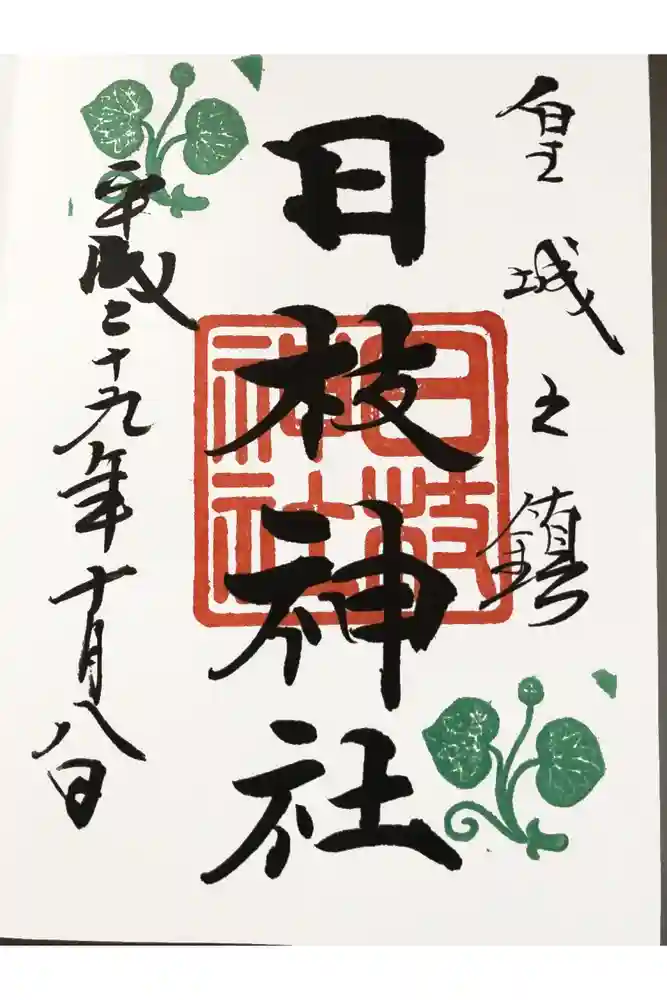 皇城之鎮
日枝神社
日枝神社
平成二十九年十月八日